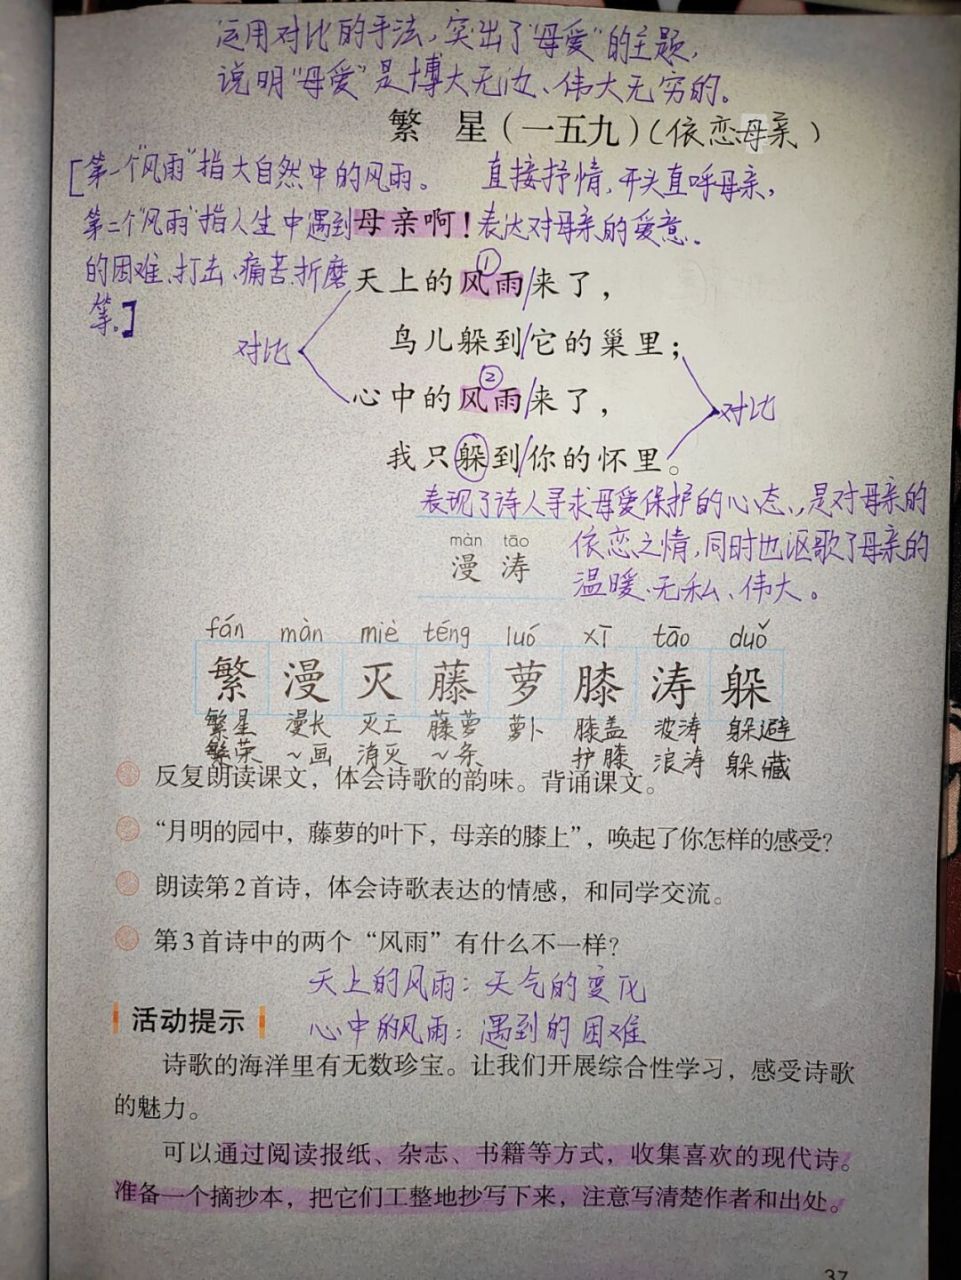 运用对比的手法,突出了“母爱”的主题,
说明“母爱”是博大无边、伟大无穷的。
繁 星(一五九)(依恋母亲)
[第一个“风雨”指大自然中的风雨。
直接抒情,开头直呼母亲,
第二个“风雨”指人生中遇到
母亲啊!
表达对母亲的爱意。
的困难、打击、痛苦、折磨
等。]
①
天上的风雨/来了,
鸟儿躲到/它的巢里;
对比
②
心中的风雨/来了,
对比
我只躲到/你的怀里。
表现了诗人寻求母爱保护的心态,是对母亲的
依恋之情,同时也讴歌了母亲的
温暖、无私、伟大。
màn tāo
漫 涛
fán màn miè téng luó xī tāo duǒ
繁 漫 灭 藤 萝 膝 涛 躲
繁星 漫长 灭亡 藤萝 萝卜 膝盖 波涛 躲避
繁荣 ~画 消灭 ~条 护膝 浪涛 躲藏
反复朗读课文,体会诗歌的韵味。背诵课文。
“月明的园中,藤萝的叶下,母亲的膝上”,唤起了你怎样的感受?
朗读第2首诗,体会诗歌表达的情感,和同学交流。
第3首诗中的两个“风雨”有什么不一样?
天上的风雨:天气的变化
心中的风雨:遇到的困难
活动提示
诗歌的海洋里有无数珍宝。让我们开展综合性学习,感受诗歌
的魅力。
可以通过阅读报纸、杂志、书籍等方式,收集喜欢的现代诗。
准备一个摘抄本,把它们工整地抄写下来,注意写清楚作者和出处。
37